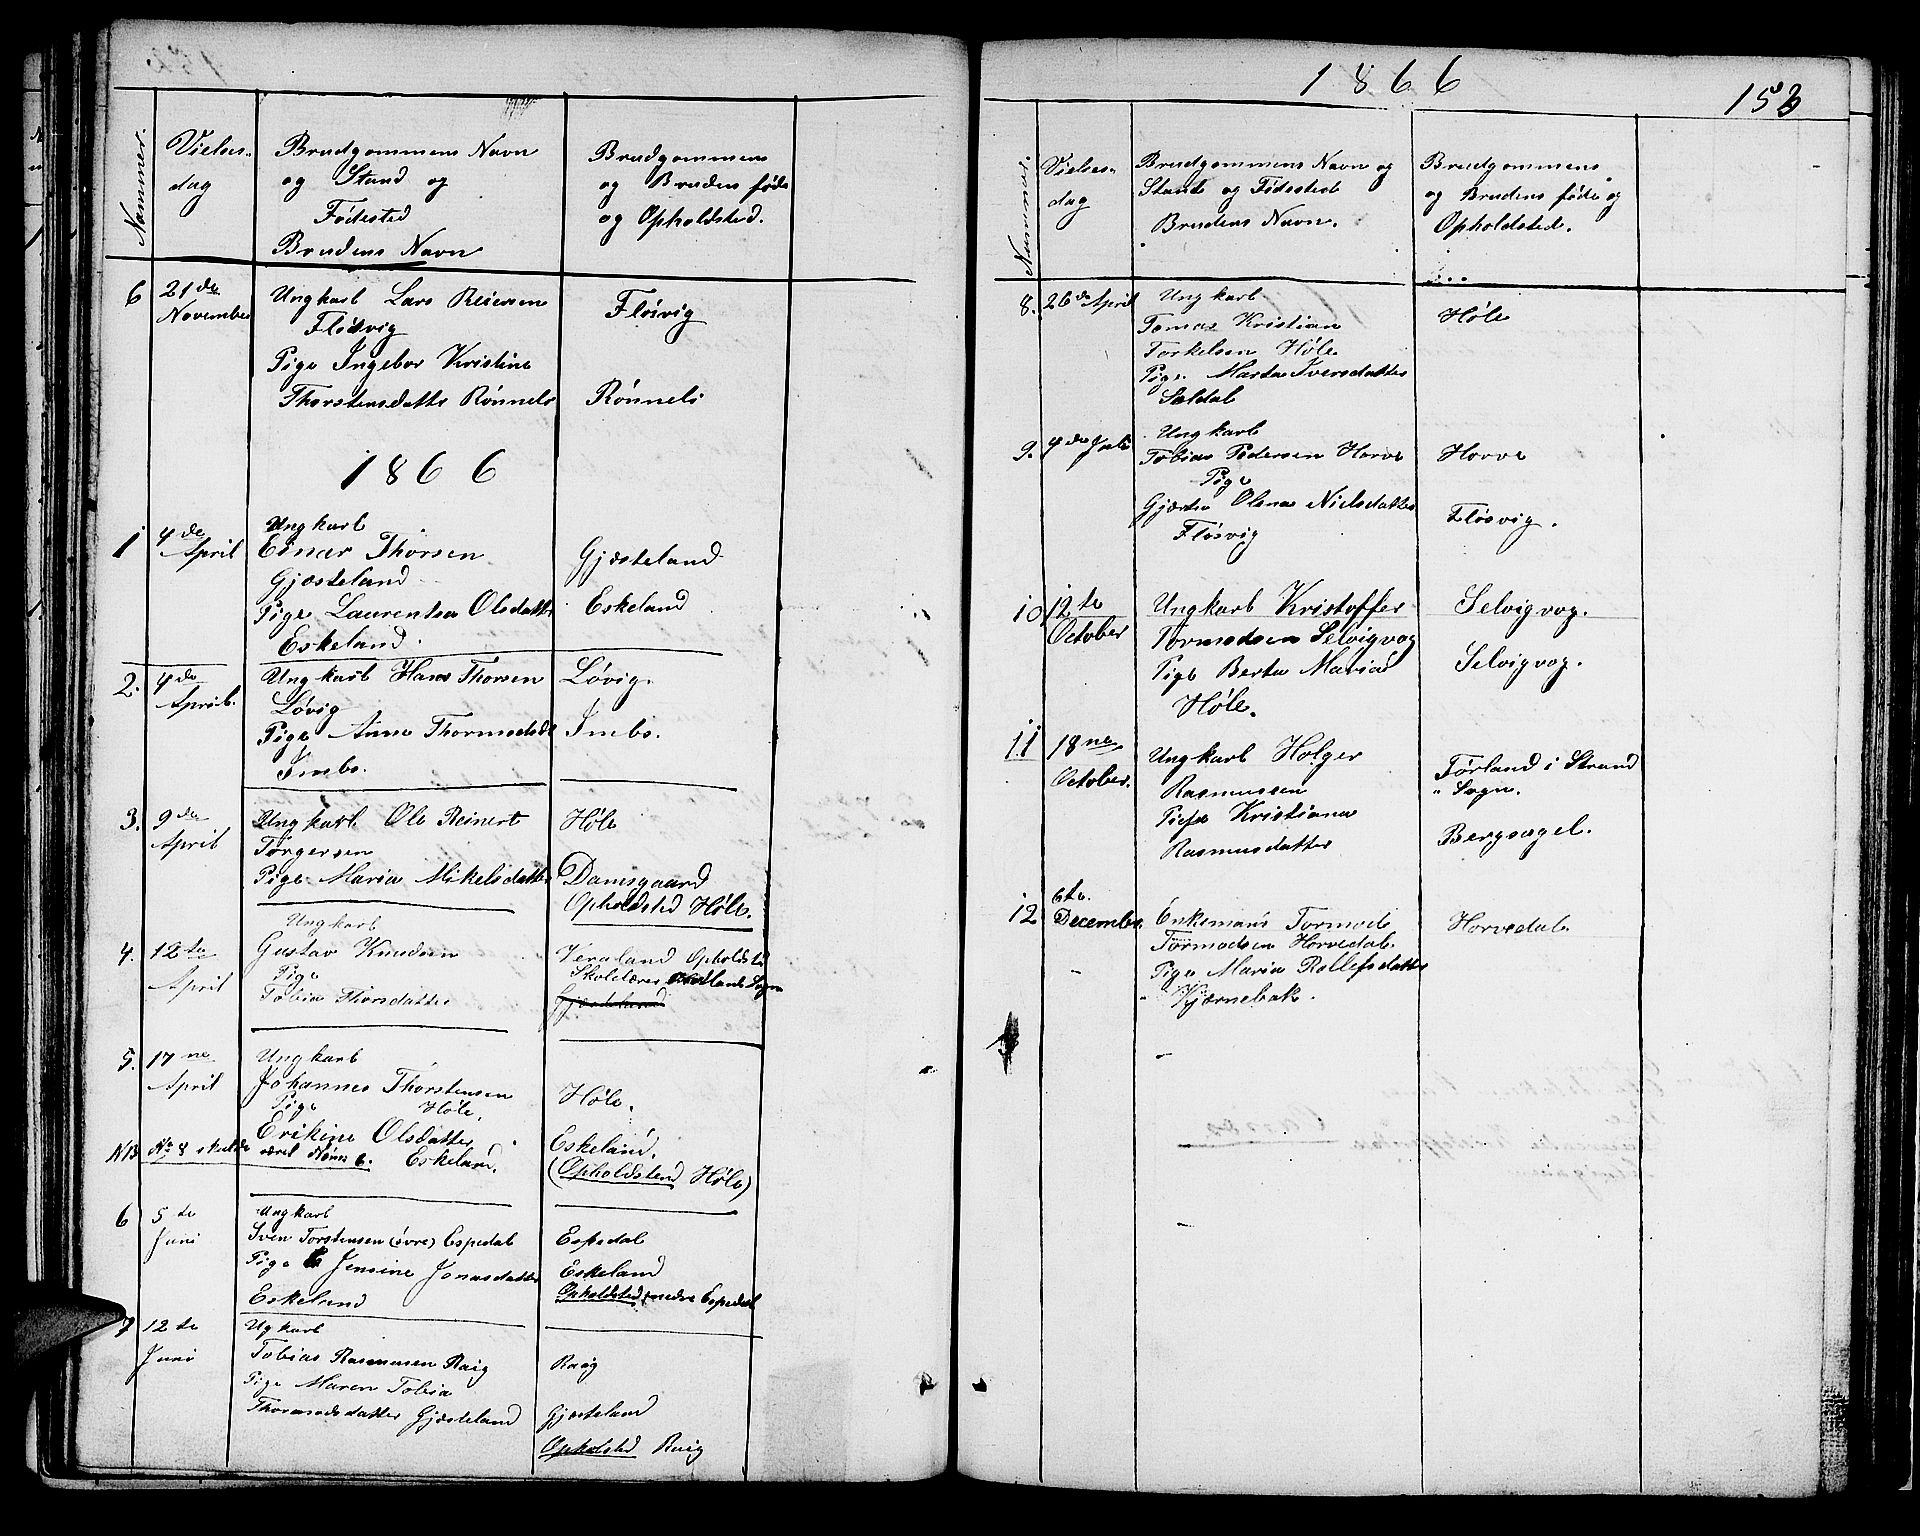 Nummer.
Vielses-
dag
Brudgommens Navn
og Stand og
Fødested
Brudens Navn
Brudgommens
og Brudens føde
og Opholdsted.
6
21de
November
Ungkarl Lars Reiersen
Fløisvig
Pige Ingebor Kristine
Thorstensdatte Rønneli
Fløisvig
Rønneli
1866
1
4de
April
Ungkarl
Einar Thorsen
Gjæsteland
Pige Laurentsa Olsdatte
Eskeland.
Gjæsteland
Eskeland
2.
4de
April.
Ungkarl Hans Thorsen
Løvig
Pige Anne Thormodsd
Imbs.
Løvig.
Imbs.
3.
9de
April
Ungkarl Ole Reinert
Torgersen
Pige Maria Mikelsdatte
Høle
Damsgaard
Opholdsted Høle.
4.
12te
April
Ungkarl
Gustav Knudsen
Pige
Tobia Thorsdatte
Veraland Opholdsted
Skolelærer Sogn
Gjæsteland
5.
17ne
April
Ungkarl
Johannes Thorstensen
Pige Høle.
Erikine Olsdatter
Eskeland.
Høle.
Eskeland.
(Opholdstend Høle)
NB No 8 skulde været Nom 6.
6
5te
Juni
Ungkarl
Sven Torstensen (øvre) Espedal
Pige Jensine Jonasdatter
Eskeland
Espedal
Eskeland
Opholdsted nedre Espedal
7
12te
Juni
Ugkarl
Tobias Rasmusen Raig
Pige Maren Tobia
Thormodsdatter Gjæsteland
Raig
Gjæsteland
Opholsted Raig
1866
153
Nummer.
Vielses-
dag
Brudgommens Navn og
Stand og Fødested
Brudens Navn.
Brudgommens
og Brudens føde og
Opholdsted.
8.
26de April
Ungkarl
Tomas Kristian
Torkelsen Høle
Pige. Marta Iversdatter
Sældal
Høle
9.
4de Juli
Ungkarl
Tobias Pedersen Horve
Pige
Gjærtru Olena Nielsdatter
Fløsvig
Horve
Fløsvig.
10
12te
October
Ungkarl Kristoffer
Tormodsen Selvigvog
Pige Berta Maria
Høle.
Selvigvog.
Selvigvog.
11
18ne
October.
Ungkarl Holger
Rasmussen
Piefe Kristiana
Rasmusdatter
Tørland i Strand
" Sogn.
Bergsagel.
12
6te.
December.
Enkemans Tormod
Tormodsen Horvedal.
Pige Maria Rollefsdatte
Kjærnebak.
Horvedal.